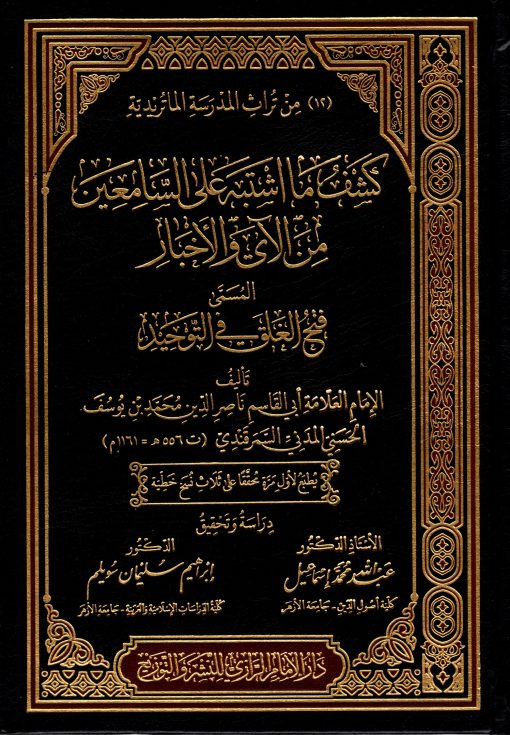 (١٢) مِنْ تُرَاثِ المَدْرَسَةِ المَاتُرِيدِيَّةِ
كَشْفُ مَا اشْتَبَهَ عَلَى السَّامِعِين
مِنَ الآيِ وَالأَخْبَارِ
المُسَمَّى
فَتْحُ الغَلَقِ فِي التَّوْحِيدِ
تَأْلِيفُ
الإِمَامِ العَلَّامَةِ أَبِي القَاسِمِ نَاصِرِ الدِّينِ مُحَمَّدِ بْنِ يُوسُفَ
الحُسَيْنِيِّ المَدَنِيِّ السَّمَرْقَنْدِيِّ (ت ٥٥٦ هـ = ١١٦١م)
يُطْبَعُ لِأَوَّلِ مَرَّةٍ مُحَقَّقًا عَلَى ثَلَاثِ نُسَخٍ خَطِّيَّةٍ
دِرَاسَةُ وَتَحْقِيقُ
الأُسْتَاذِ الدُّكْتُورِ
عبد الله محمد إسماعيل
كلية أصول الدين - جامعة الأزهر
الدكتور
إبراهيم سليمان سويلم
كلية الدراسات الإسلامية والعربية - جامعة الأزهر
دَارُ الإِمَامِ الرَّازِي لِلنَّشْرِ وَالتَّوْزِيعِ